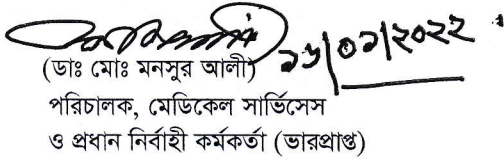 ১৬/০১/২০২২
(ডাঃ মোঃ মনসুর আলী)
পরিচালক, মেডিকেল সার্ভিসেস
ও প্রধান নির্বাহী কর্মকর্তা (ভারপ্রাপ্ত)